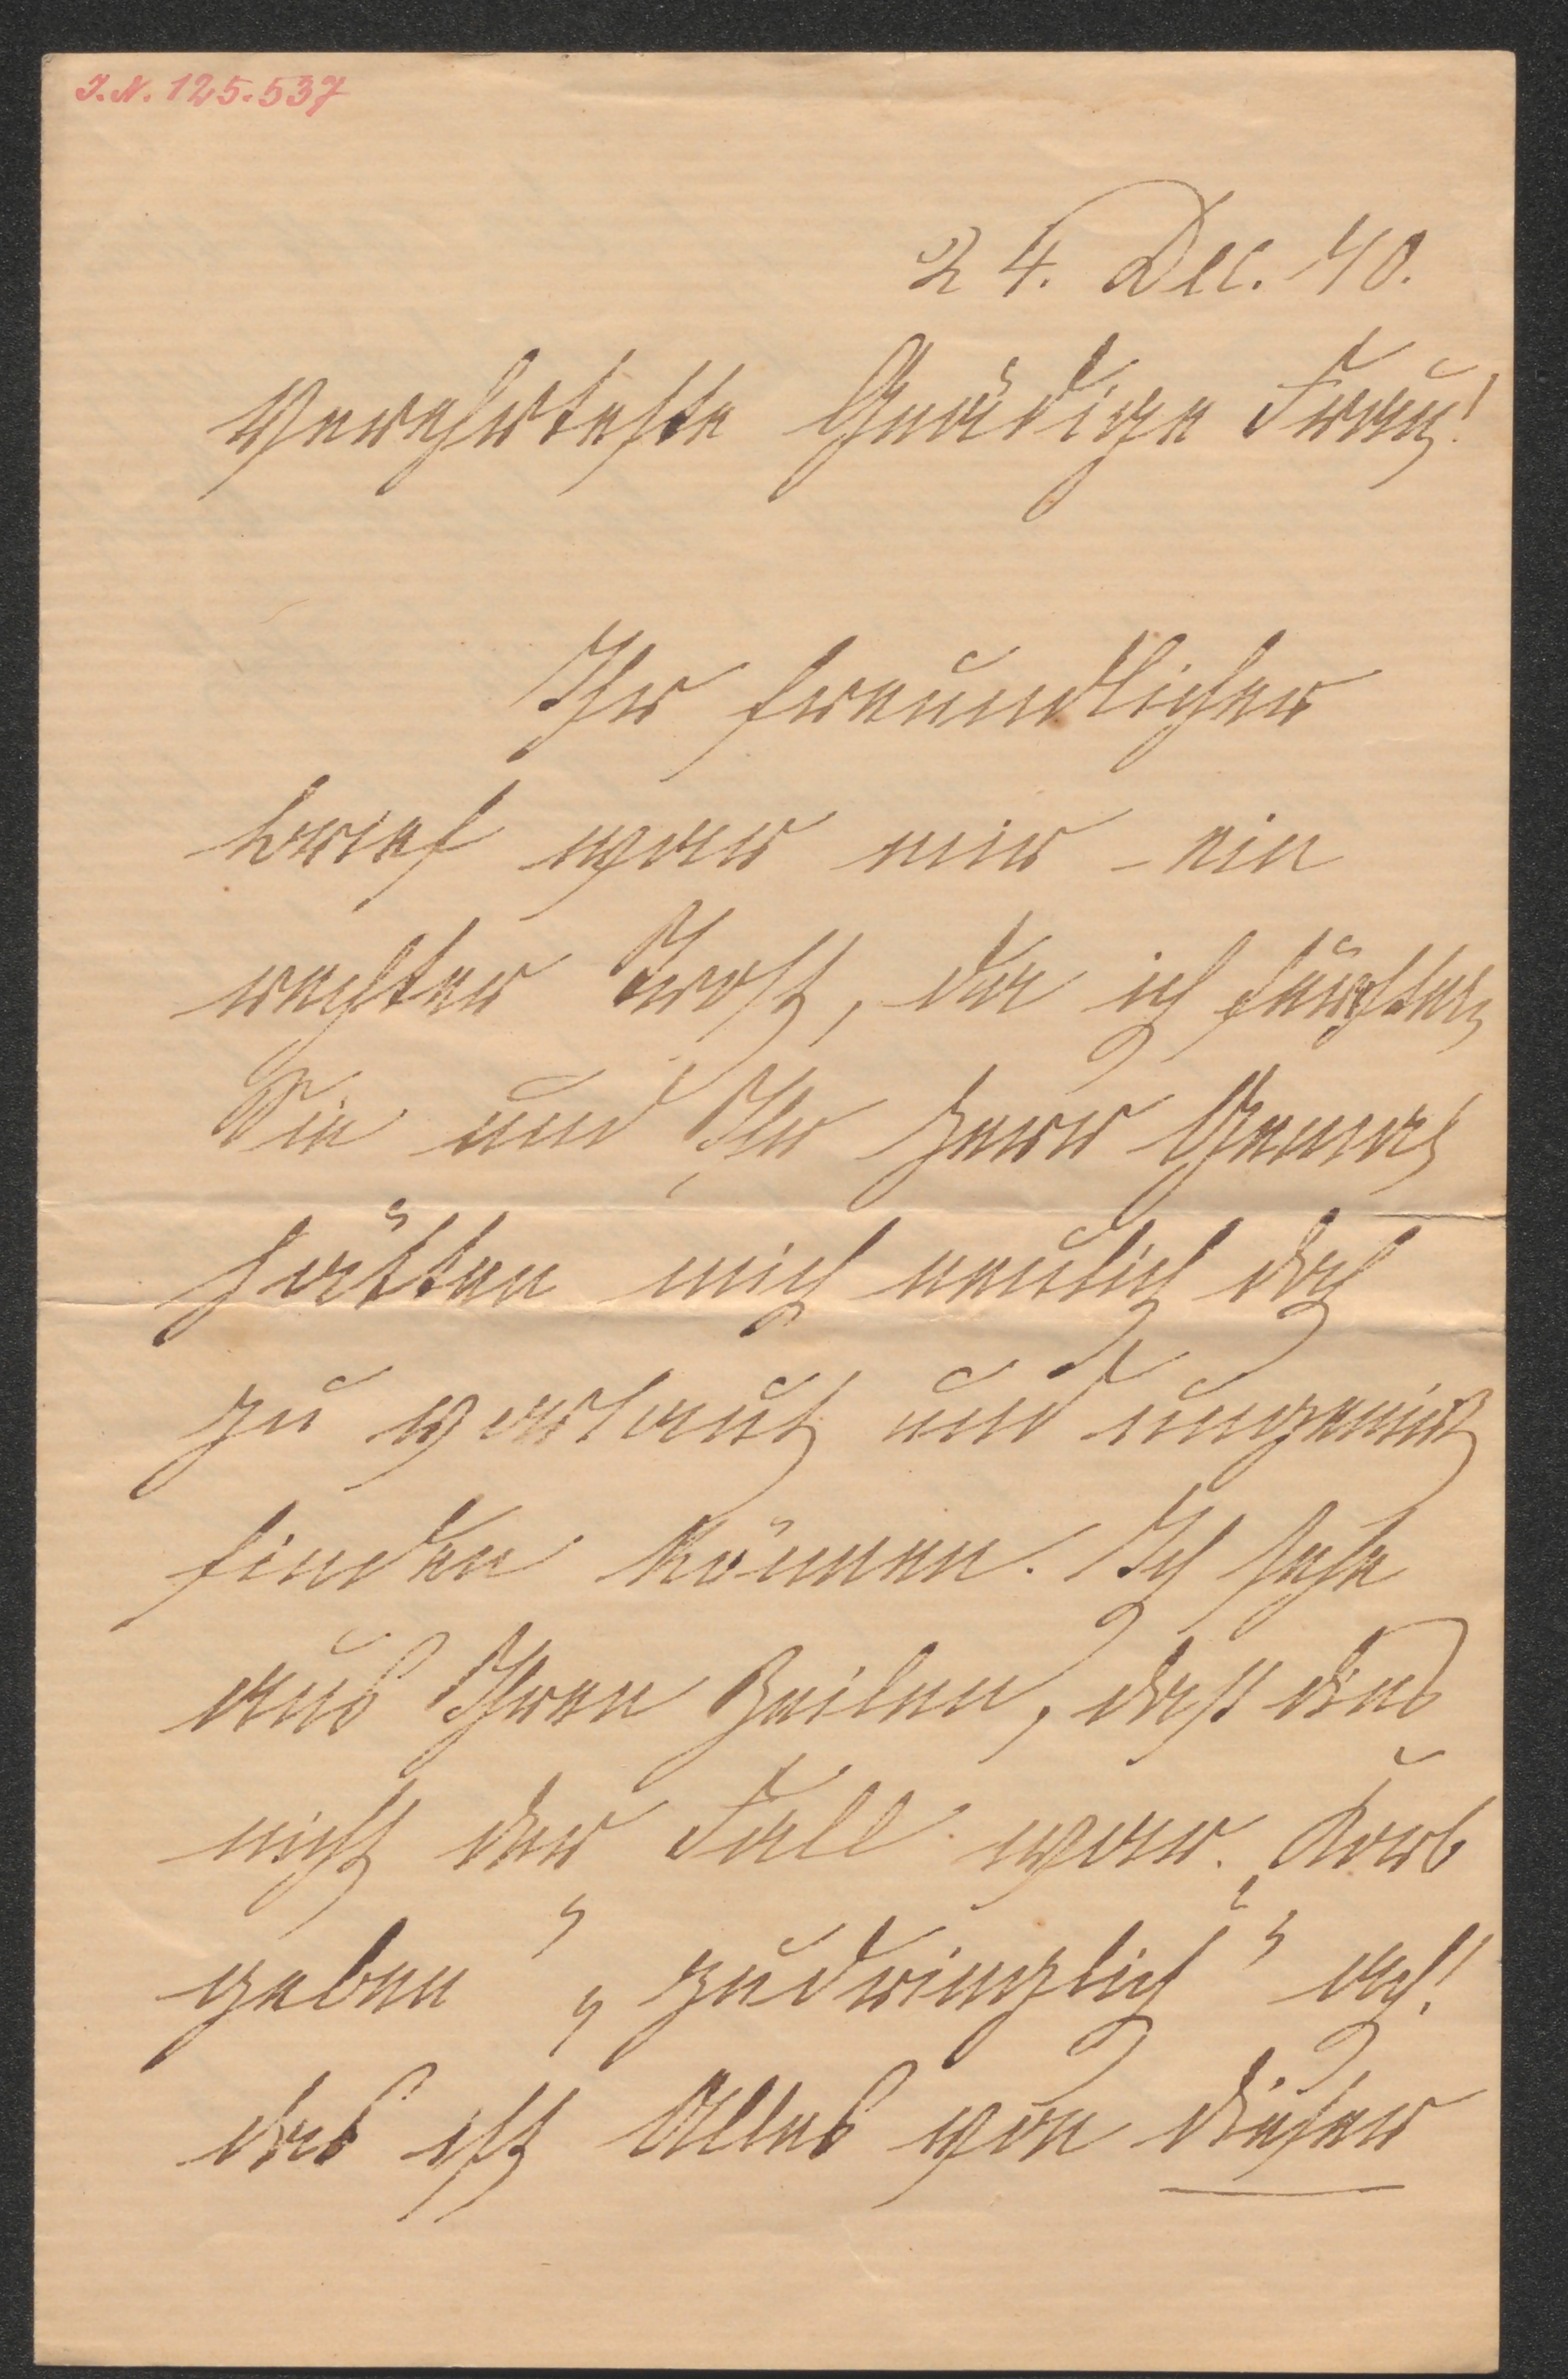 J.N. 125.537
24. Dec.
Verehrteste Gnädige Frau!
Ihr freundlicher
Brief war mir ein
rechter Trost, da ich fürchtete
Sie und Ihr Herr Gemahl
hätten mich neulich doch
zu vorlaut und ungenirt
finden können. Ich sehe
aus Ihren Zeilen, dass dies
nicht der Fall war. „Korb
geben“ „zudringlich“ ach!
das ist Alles von dieser